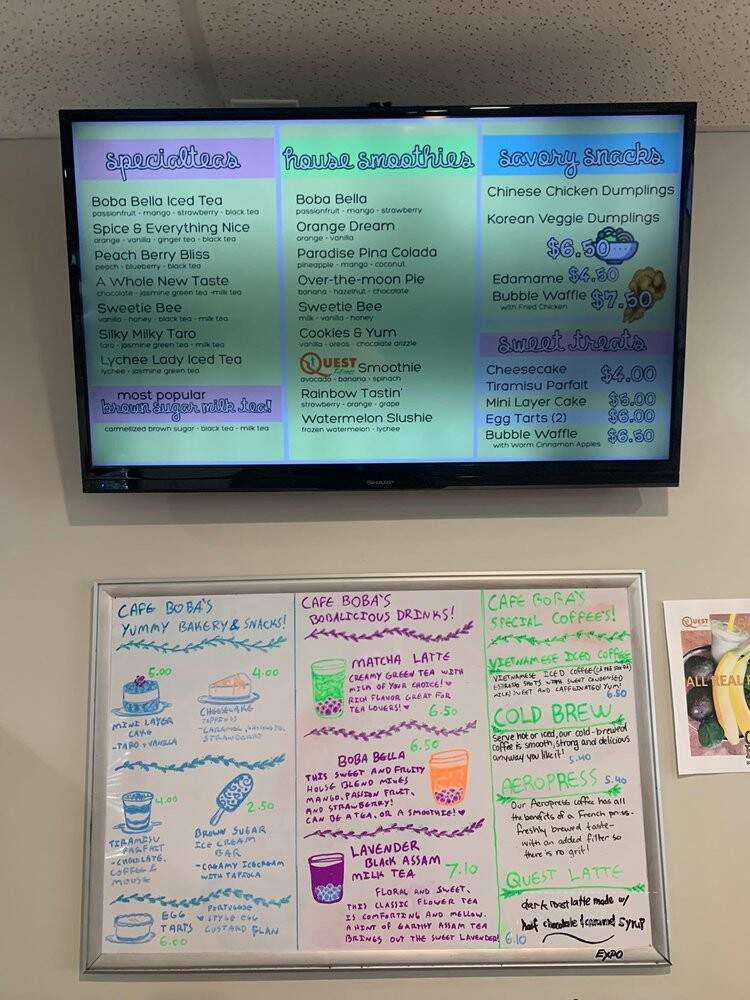 specialteas
Boba Bella Iced Tea
passionfruit - mango - strawberry - black tea
Spice & Everything Nice
orange - vanilla - ginger tea - black tea
Peach Berry Bliss
peach - blueberry - black tea
A Whole New Taste
chocolate - jasmine green tea - milk tea
Sweetie Bee
vanilla - honey - black tea - milk tea
Silky Milky Taro
taro - jasmine green tea - milk tea
Lychee Lady Iced Tea
lychee - jasmine green tea
most popular
brown sugar milk tea!
carmelized brown sugar - black tea - milk tea
house smoothies
Boba Bella
passionfruit - mango - strawberry
Orange Dream
orange - vanilla
Paradise Pina Colada
pineapple - mango - coconut
Over-the-moon Pie
banana - hazelnut - chocolate
Sweetie Bee
milk - vanilla - honey
Cookies & Yum
vanilla - oreos - chocolate drizzle
QUEST Fitness Smoothie
avocado - banana - spinach
Rainbow Tastin'
strawberry - orange - grape
Watermelon Slushie
frozen watermelon - lychee
savory snacks
Chinese Chicken Dumplings
Korean Veggie Dumplings
$6.50
Edamame $4.50
Bubble Waffle $7.50
with Fried Chicken
sweet treats
Cheesecake
Tiramisu Parfait $4.00
Mini Layer Cake $5.00
Egg Tarts (2) $6.00
Bubble Waffle $6.50
with Warm Cinnamon Apples
SHARP
CAFE BOBA'S
YUMMY BAKERY & SNACKS!
5.00
MINI LAYER
CAKE
-TARO & VANILLA
4.00
CHEESECAKE
STRAWBERRY
4.00
TIRAMISU
PARFAIT
-CHOCOLATE,
COFFEE &
MOUSSE
2.50
BROWN SUGAR
ICE CREAM
BAR
-CREAMY ICECREAM
WITH TAPIOCA
EGG
TARTS
6.00
PORTUGESE
STYLE EGG
CUSTARD FLAN
CAFE BOBA'S
BOBALICIOUS DRINKS!
MATCHA LATTE
CREAMY GREEN TEA WITH
MILK OF YOUR CHOICE! ♥
RICH FLAVOR GREAT FOR
TEA LOVERS! ♥
6.50
6.50
BOBA BELLA
THIS SWEET AND FRUITY
HOUSE BLEND MIXES
MANGO, PASSION FRUIT,
AND STRAWBERRY!
CAN BE A TEA, OR A SMOOTHIE! ♥
LAVENDER
BLACK ASSAM
MILK TEA
7.10
FLORAL AND SWEET,
THIS CLASSIC FLOWER TEA
IS COMFORTING AND MELLOW.
A HINT OF EARTHY ASSAM TEA
BRINGS OUT THE SWEET LAVENDER!
CAFE BOBA'S
SPECIAL COFFEE'S!
VIETNAMESE ICED COFFEE
VIETNAMESE ICED COFFEE
ESPRESSO SHOTS WITH SWEET CONDENSED
MILK! SWEET AND CAFFEINATED! YUM!
6.50
COLD BREW
Serve hot or iced, our cold-brewed
coffee is smooth, strong and delicious
anyway you like it!
5.40
AEROPRESS 5.40
Our Aeropress coffee has all
the benefits of a French press-
freshly brewed taste-
with an added filter so
there is no grit!
QUEST LATTE
dark roast latte made w/
half chocolate & caramel syrup
6.10
EXPO
QUEST
ALL REAL